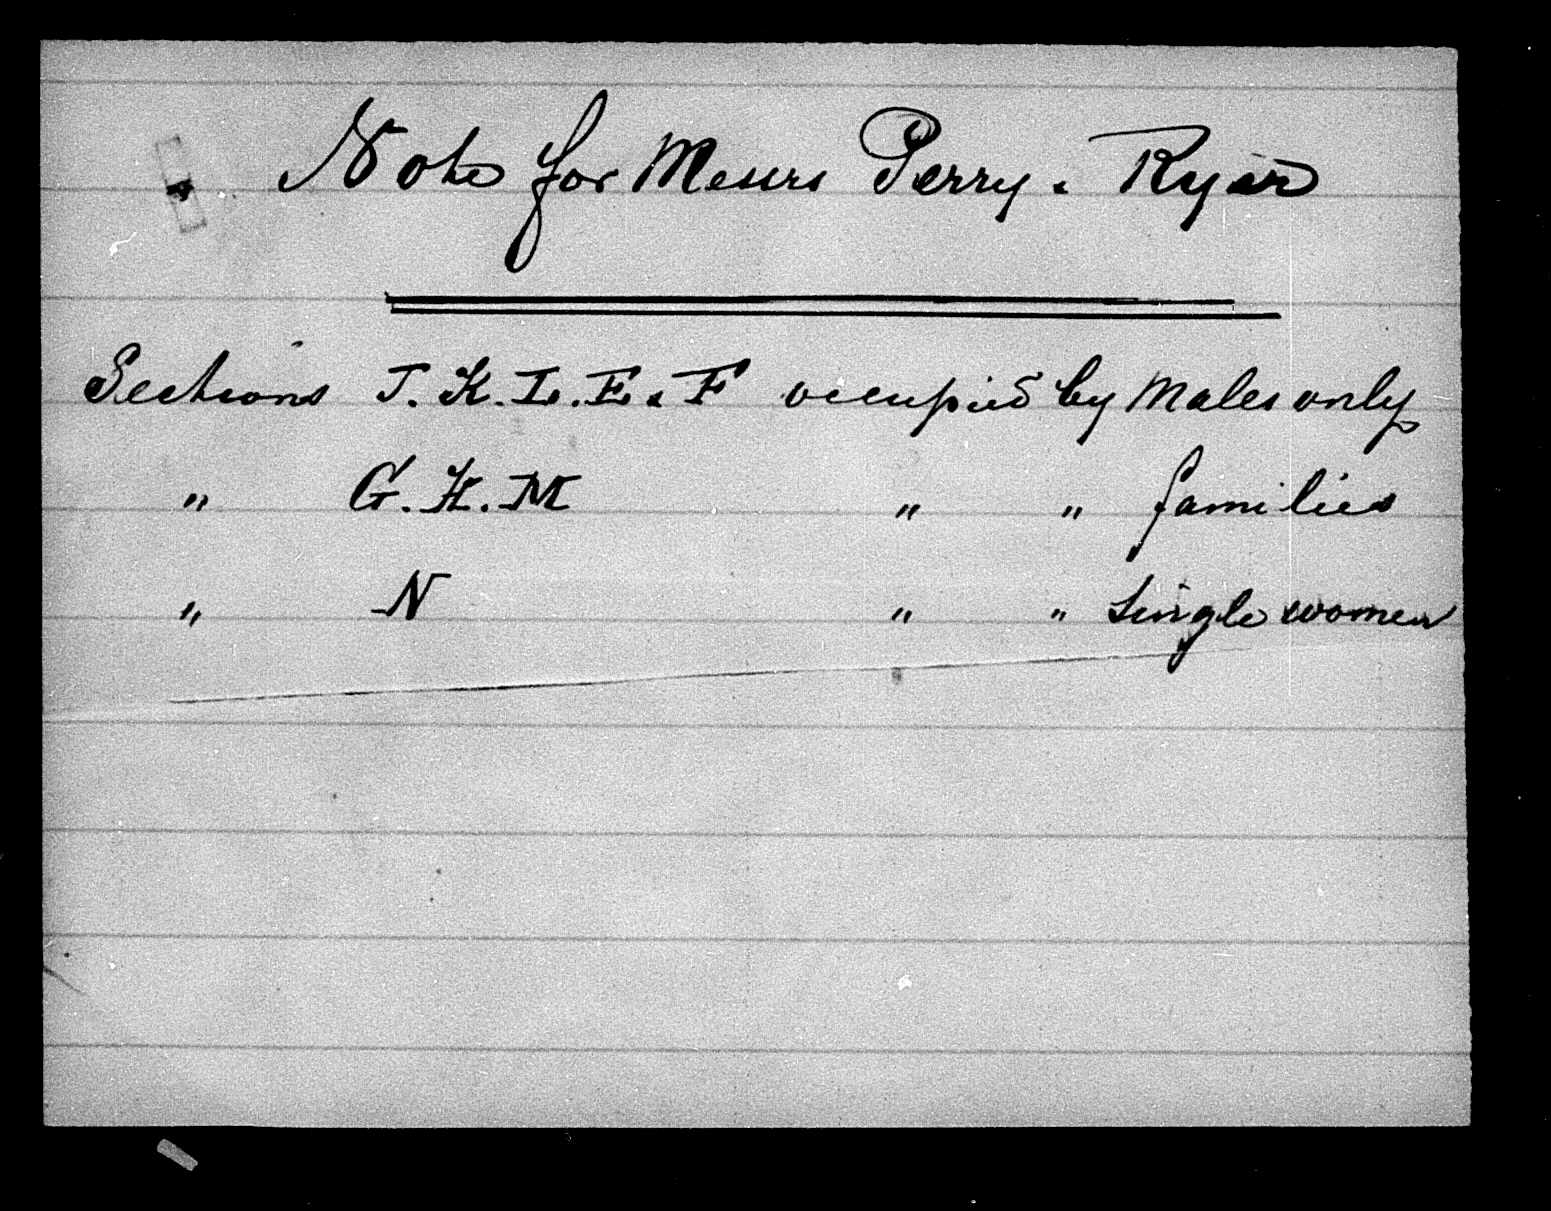 Note for Messrs Perry. Ryan
Sections J. K. L. E. F occupied by Males only
" G. H. M " " families
" N " " Single women